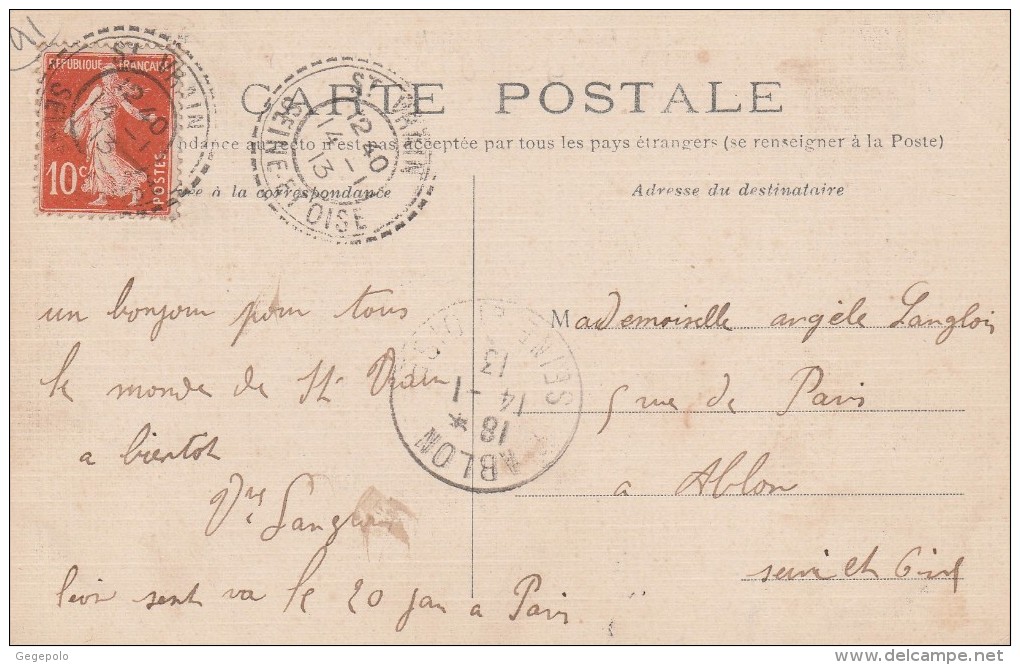 91
RÉPUBLIQUE FRANÇAISE
10c
POSTES
ST VRAIN
12 40
14 - 1
13
SEINE ET OISE
CARTE POSTALE
ndance au recto n'est pas acceptée par tous les pays étrangers (se renseigner à la Poste)
ée à la correspondance
Adresse du destinataire
un bonjour pour tous
le monde de St Vrain
a bientot
Vve Langlois
léon sent va le 20 jan a Paris
Mademoiselle angèle Langlois
5 rue de Paris
a Ablon
seine et Oise
ABLON
18 *
14 - 1
13
SEINE ET OISE
Gegepolo
delcampe.net